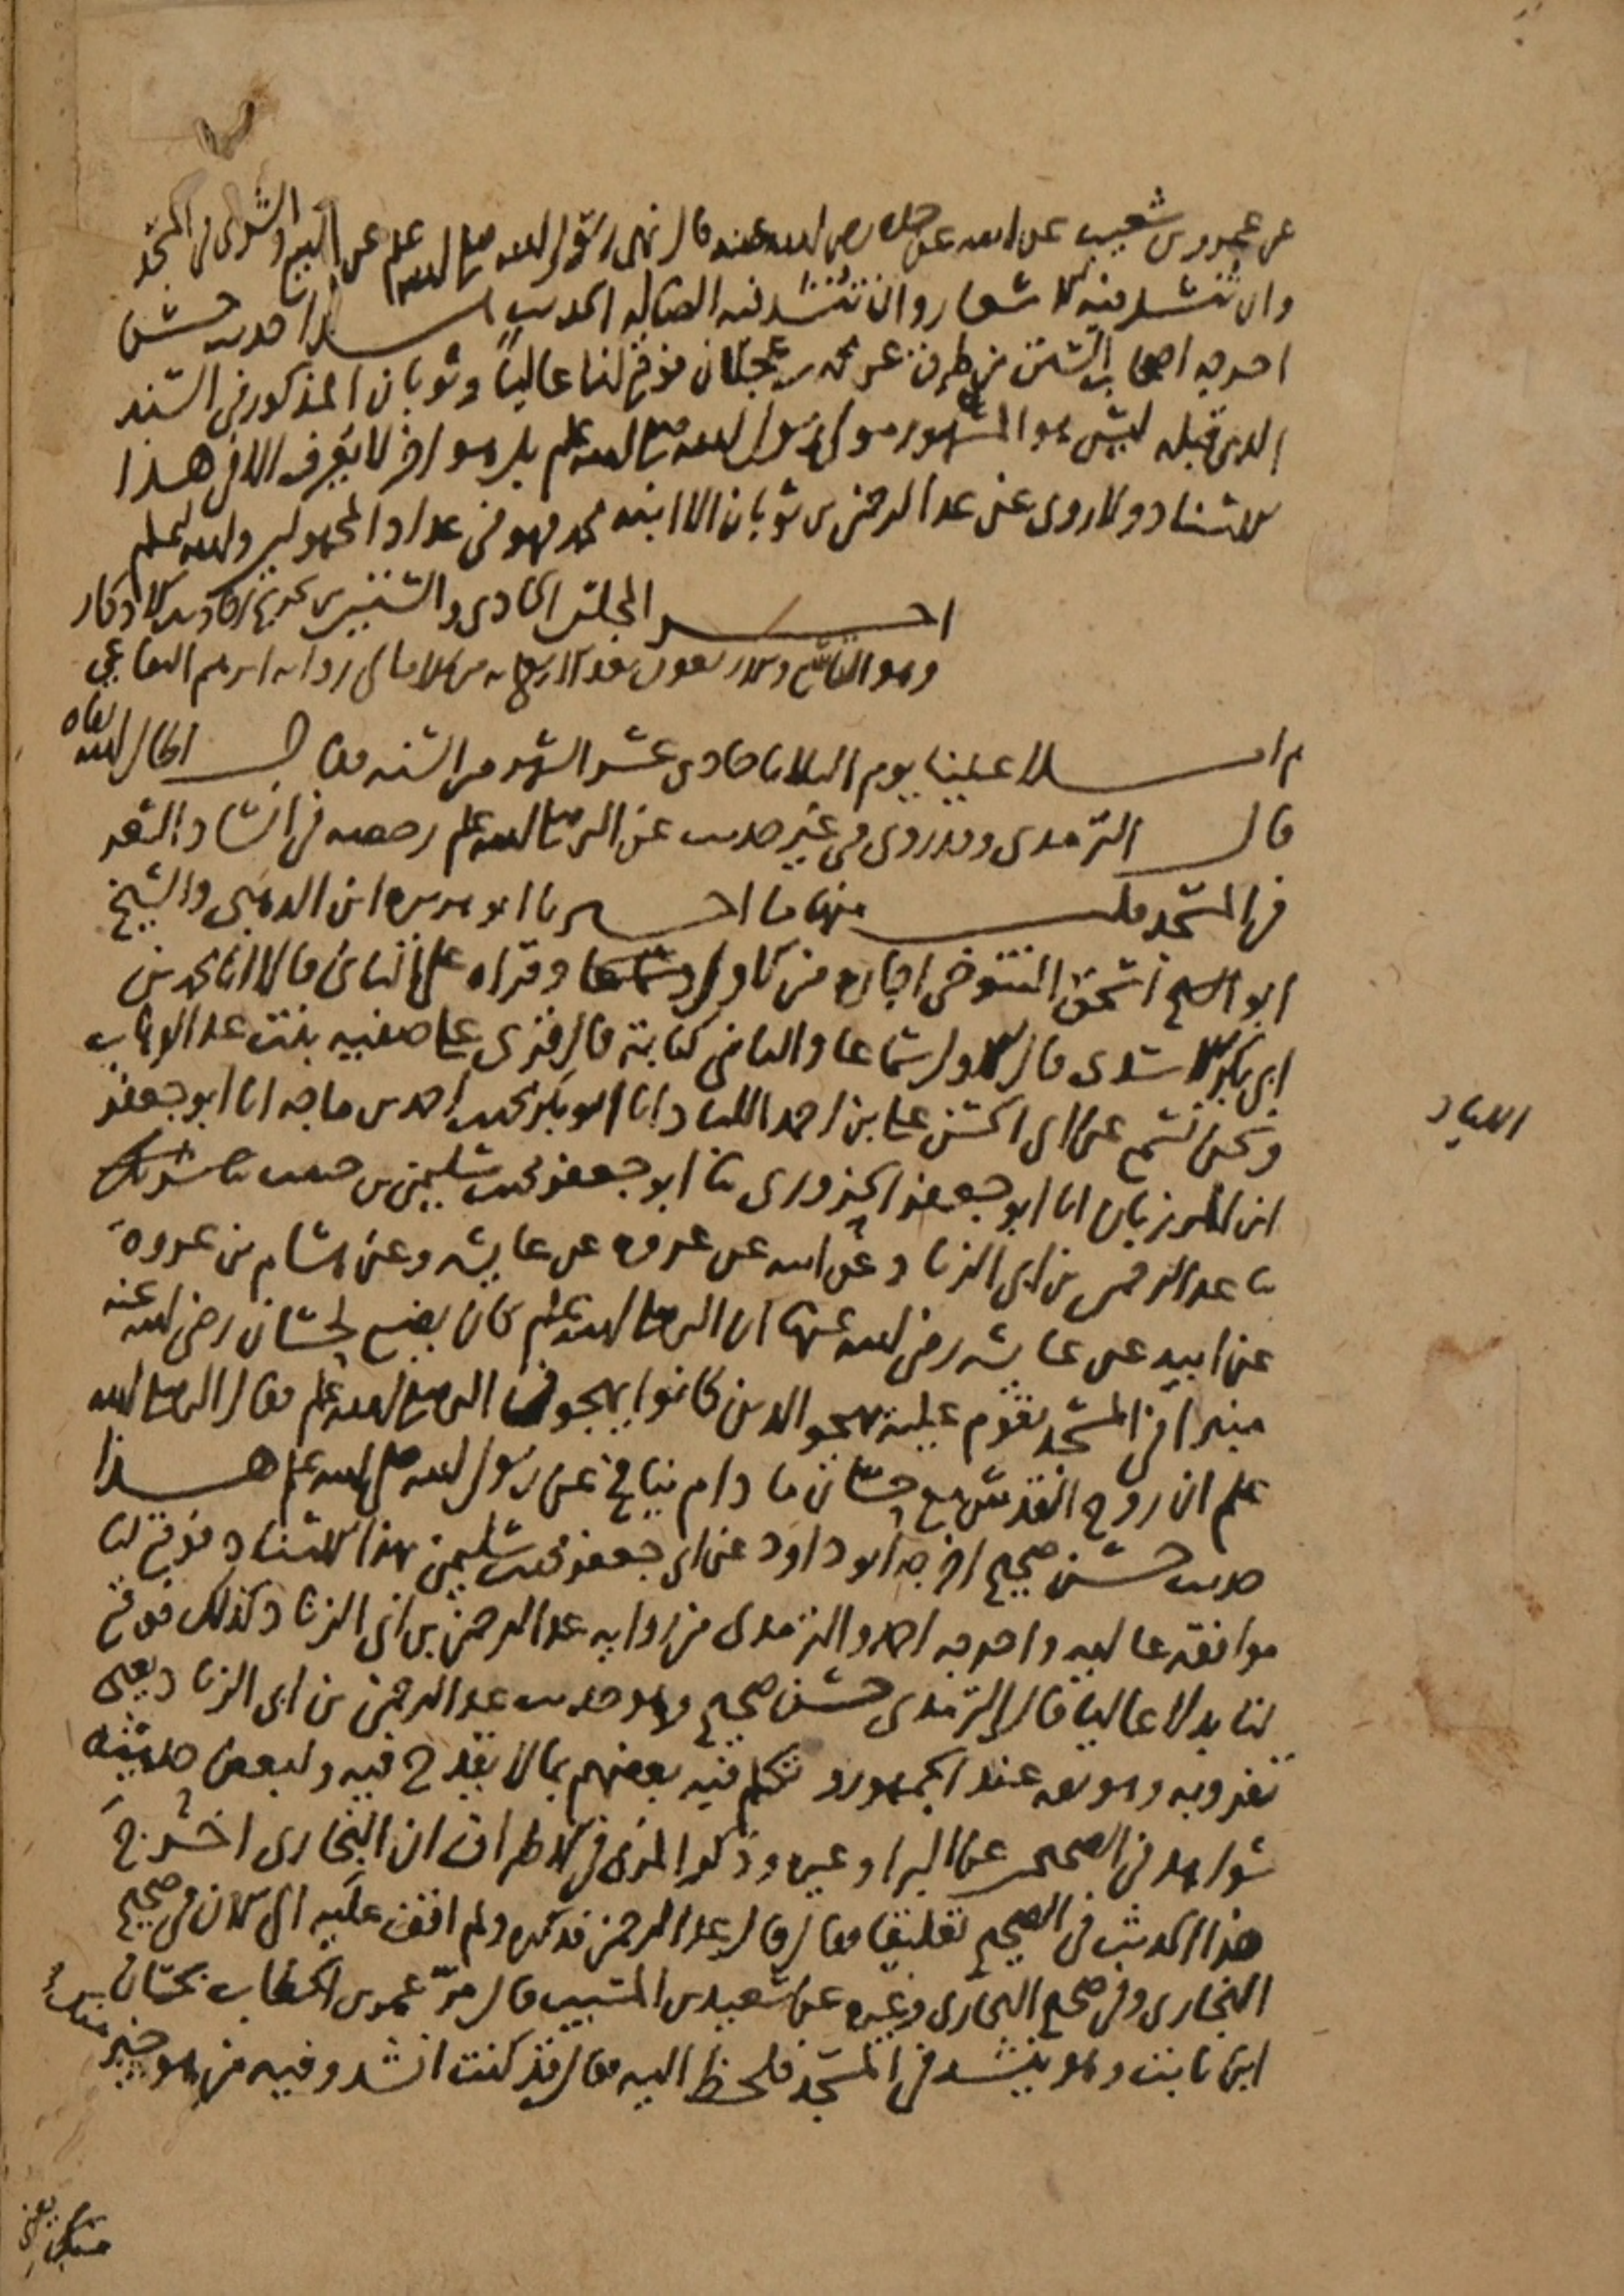 عن عمرو بن شعيب عن ابيه عن جده رضي الله عنه قال نهى رسول الله صلى الله عليه وسلم عن البيع والشرى في المسجد
وان تنشد فيه الاشعار وان تنشد فيه الضالة الحديث هذا حديث حسن
اخرجه اصحاب السنن من طرق عن محمد بن عجلان فوقع لنا عاليا وثوبان المذكور في السند
الذي قبله ليس هو المشهور مولى رسول الله صلى الله عليه وسلم بل هو اخر لا يعرف الا في هذا
الاسناد ولا روى عن عبد الرحمن بن ثوبان الا ابنه محمد فهو في عداد المجهولين والله اعلم
اخر المجلس الحادي والستين من تخريج احاديث الاذكار
وهو التاسع والاربعون بعد الاربعمائة من الامالي رواية ابرهيم البقاعي
ثم املا علينا يوم الثلاثا حادي عشر الشهر من السنة فقال اطال الله بقاه
قال الترمذي وقد روى في غير حديث عن النبي صلى الله عليه وسلم رخصة في انشاد الشعر
في المسجد قلت منها ما اخبرنا ابو هريرة ابن الذهبي والشيخ
ابو اسحق التنوخي اجازة من الاول وسماعا وقراه على الثاني قالا انا يحيى بن
ابي بكر الاسدي قال الاول سماعا والثاني كتابة قال قرئ على صفية بنت عبد الوهاب
ونحن نسمع عن ابي الحسن علي بن احمد اللباد انا ابو بكر محمد بن احمد بن ماجه انا ابو جعفر
ابن المرزبان انا ابو جعفر الحزوري ثنا ابو جعفر محمد بن سليمن بن حبيب
ثنا عبد الرحمن بن ابي الزناد عن ابيه عن عروه عن عايشه وعن هشام بن عروة
عن ابيه عن عايشه رضي الله عنها ان النبي صلى الله عليه وسلم كان يضع لحسان رضي الله عنه
منبرا في المسجد يقوم عليه يهجو الذين كانوا يهجون النبي صلى الله عليه وسلم فقال النبي صلى الله
عليه وسلم ان روح القدس مع حسان ما دام ينافح عن رسول الله صلى الله عليه وسلم هذا
حديث حسن صحيح اخرجه ابو داود عن ابي جعفر محمد بن سليمن بهذا الاسناد فوقع لنا
موافقة عالية واخرجه احمد والترمذي من رواية عبد الرحمن بن ابي الزناد كذلك فوقع
لنا بدلا عاليا قال الترمذي حسن صحيح وهو حديث عبد الرحمن بن ابي الزناد يعني
تفرد به وهو ثقه عند الجمهور وتكلم فيه بعضهم بما لا يقدح فيه ولبعض حديثه
شواهد في الصحيحين عن البرا وغيره وذكر المزي في الاطراف ان البخاري اخرج
هذا الحديث في الصحيح تعليقا فقال وقال عبد الرحمن فذكره ولم اقف عليه الى الان في صحيح
البخاري وفي صحيح البخاري وغيره عن سعيد بن المسيب قال مر عمر بن الخطاب بحسان
ابن ثابت وهو ينشد في المسجد فلحظ اليه فقال قد كنت انشد وفيه من هو خير منك
اللباد